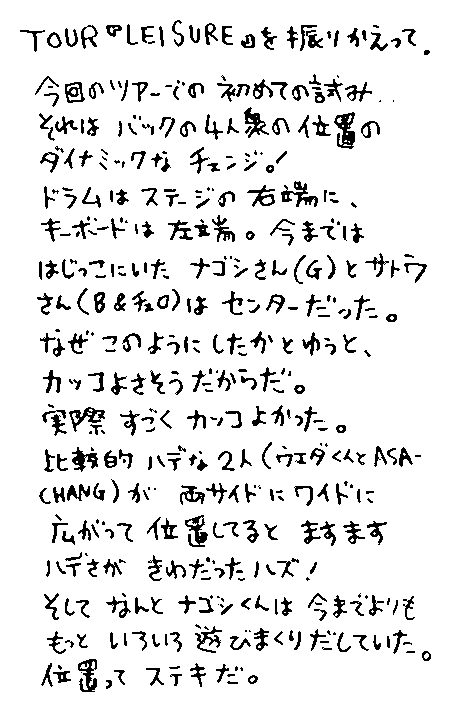 TOUR『LEISURE』を振りかえって.
今回のツアーでの初めての試み..
それは バックの4人衆の位置の
ダイナミックな チェンジ。!
ドラムは ステージの右端に、
キーボードは左端。今までは
はじっこにいた ナゴシさん(G)とサトウ
さん(B&チェロ)は センターだった。
なぜ このようにしたかとゆうと、
カッコよさそうだからだ。
実際 すごく カッコよかった。
比較的 ハデな2人(ウエダくんとASA-
CHANG)が 両サイドにワイドに
広がって位置してると ますます
ハデさが きわだったハズ!
そして なんと ナゴシくんは 今までよりも
もっと いろいろ 遊びまくりだしていた。
位置って ステキだ。